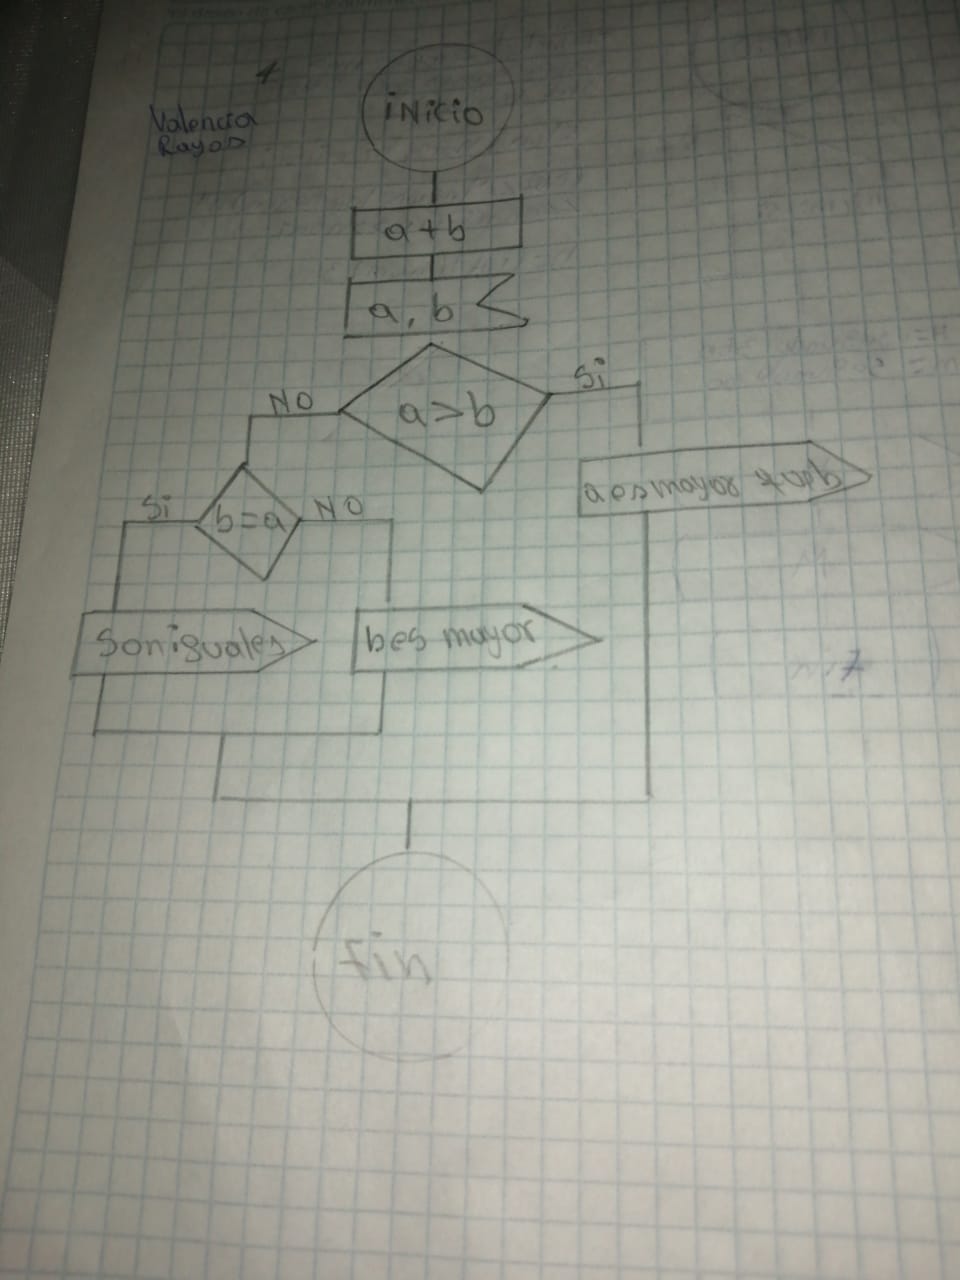 1
Valencia
Rayas
iNicio
a+b
a, b
a>b
NO
Si
a es mayor que b
b=a
Si
NO
Son iguales
b es mayor
fin